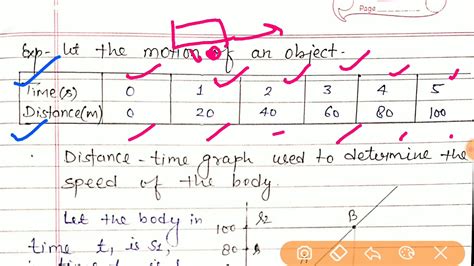 Page
Exp- let the motion of an object.
Time(s) 0 1 2 3 4 5
Distance(m) 0 20 40 60 80 100
· Distance-time graph used to determine the
speed of the body.
Let the body in
time t₁ is s₁,
100 s₂ B
80 s